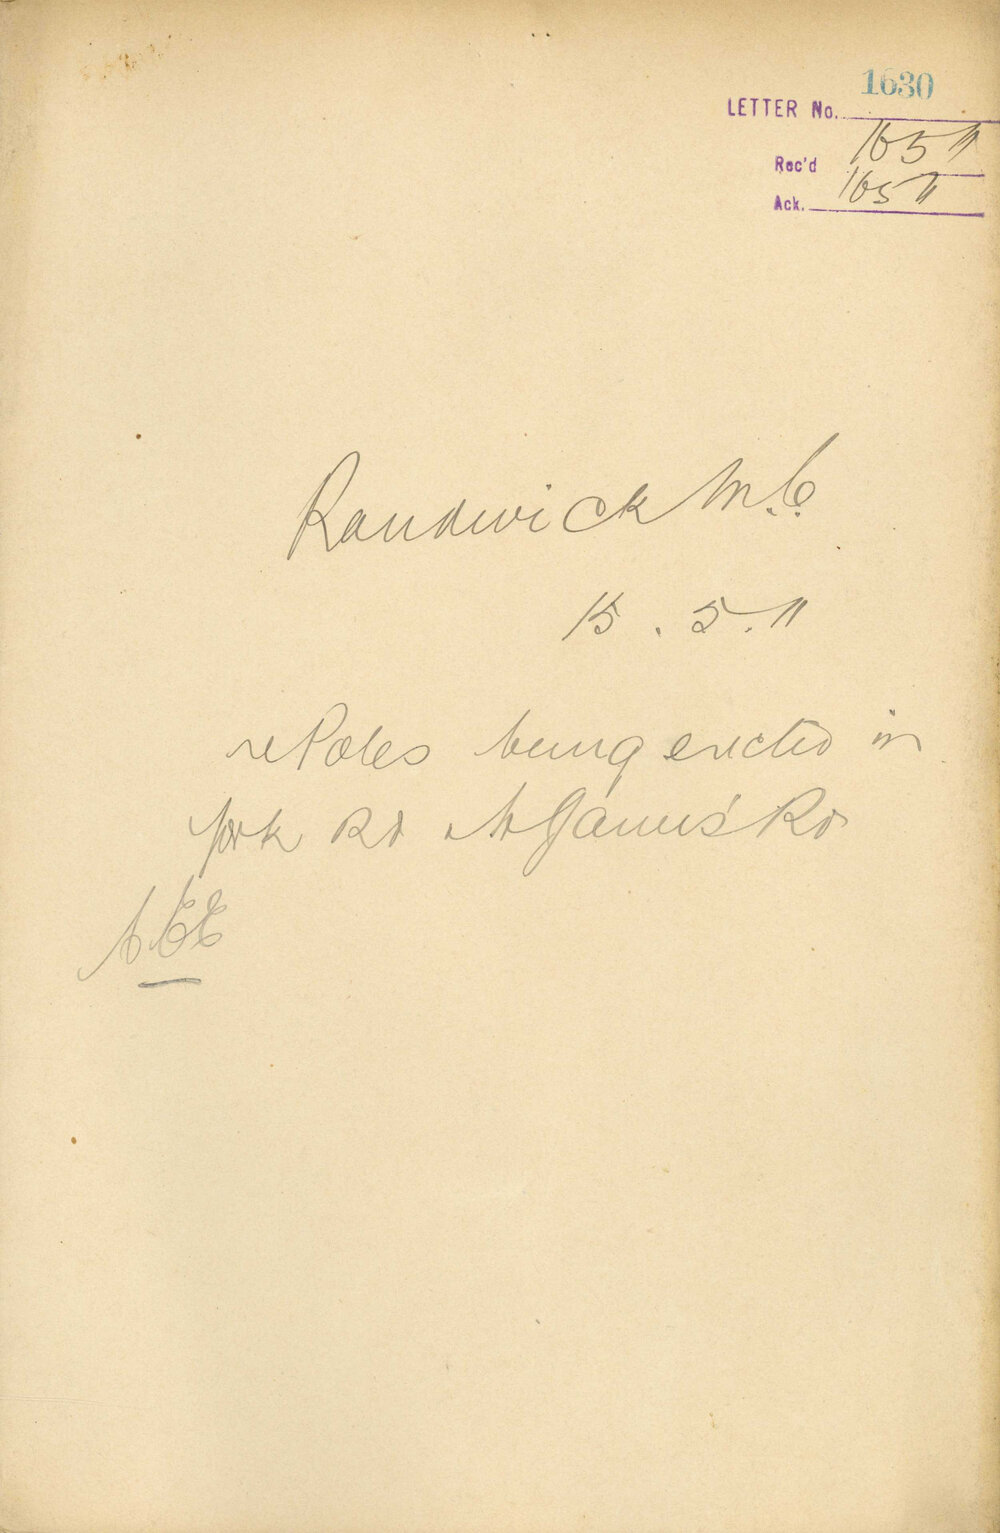 1630
LETTER No.
Rec'd 16 5 11
Ack. 16 5 11
Randwick M.C.
15.5.11
re Poles being erected in
York Rd & St James' Rd